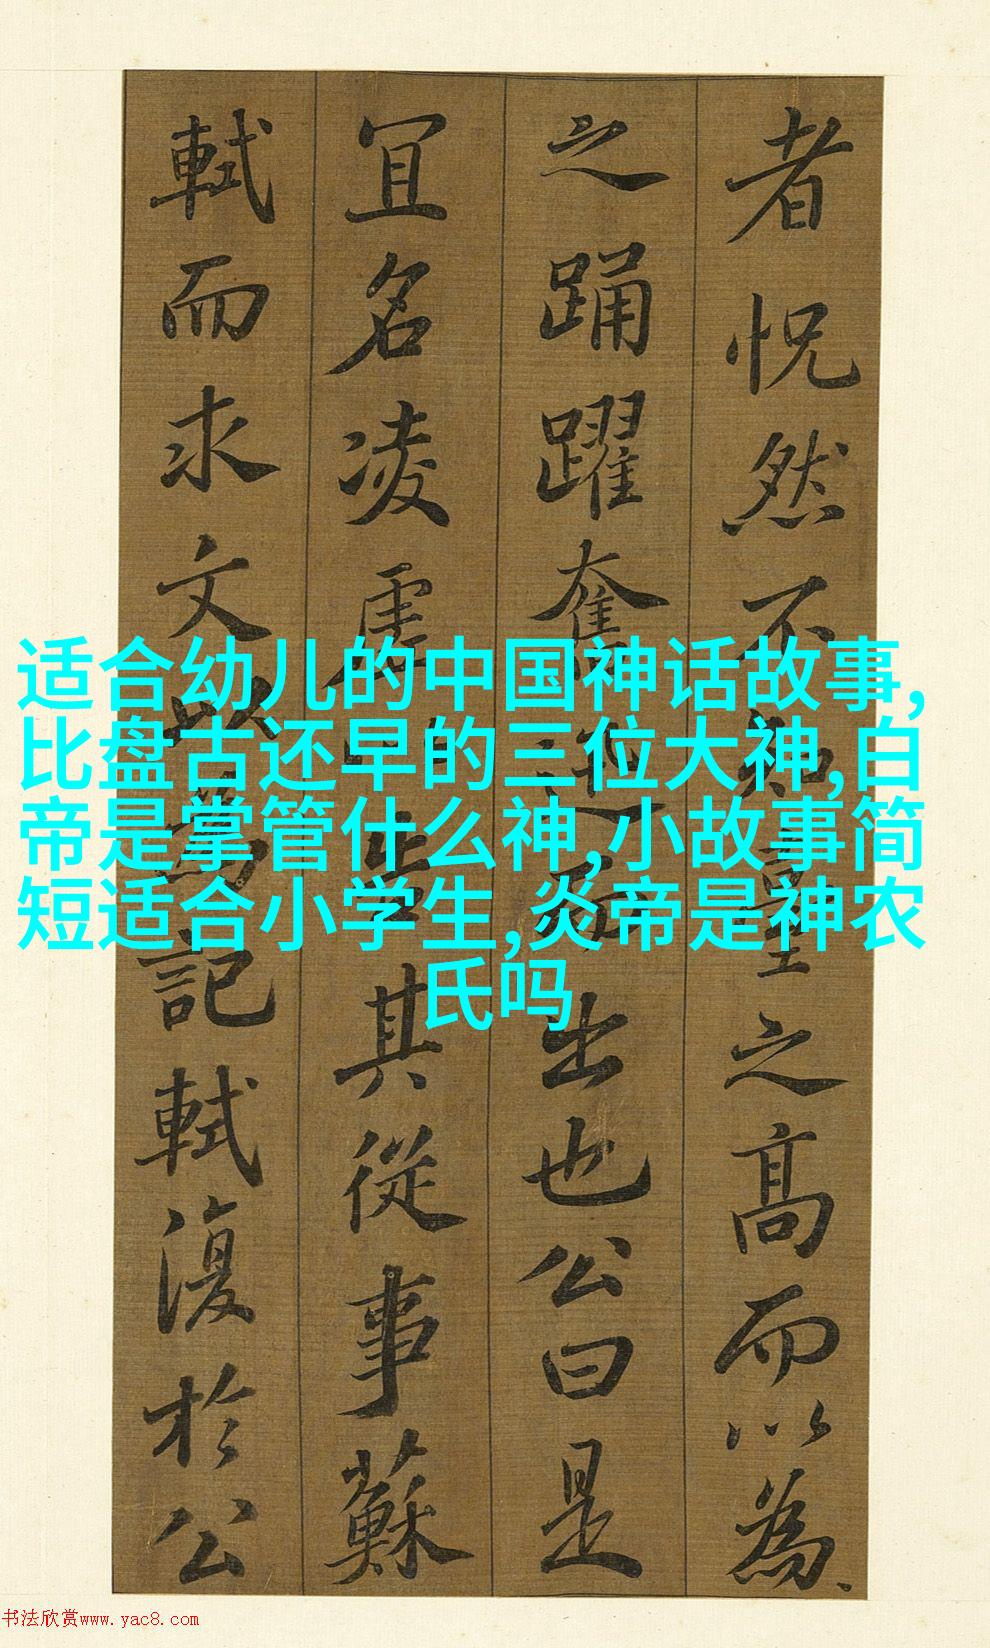 者怳然不知臺之髙而以為
之踊躍奮迅而出也公曰是
冝名凌虛以告其從事蘇
軾而求文以為記軾復於公
适合幼儿的中国神话故事,
比盘古还早的三位大神,白
帝是掌管什么神,小故事简
短适合小学生,炎帝是神农
氏吗
书法欣赏www.yac8.com